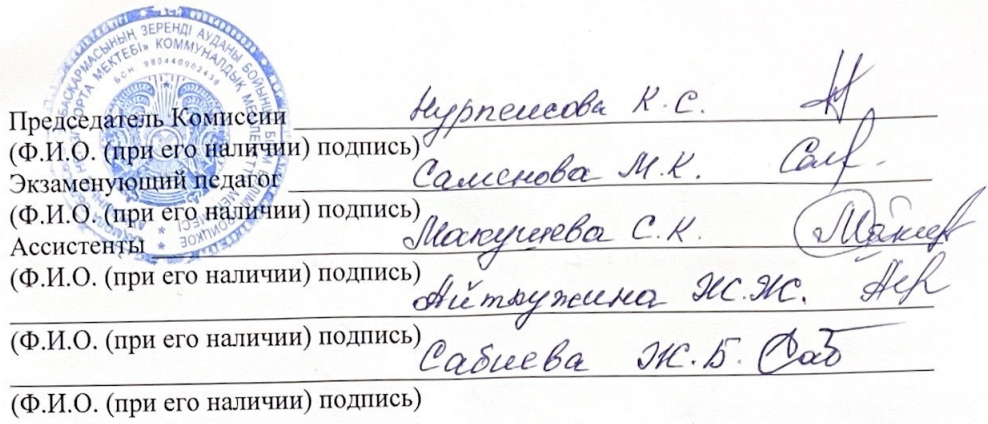 БАСҚАРМАСЫНЫҢ ЗЕРЕНДІ АУДАНЫ БОЙЫНША БІЛІМ
ОРТА МЕКТЕБІ» КОММУНАЛДЫҚ МЕМЛЕКЕТТІК МЕКЕМЕСІ
БСН 980440002439
Председатель Комиссии Нурпеисова К.С.
(Ф.И.О. (при его наличии) подпись)
Экзаменующий педагог Саменова М.К.
(Ф.И.О. (при его наличии) подпись)
Ассистенты Макушева С.К.
(Ф.И.О. (при его наличии) подпись)
Айткужина Ж.Ж.
(Ф.И.О. (при его наличии) подпись)
Сабиева Ж.Б. Саб
(Ф.И.О. (при его наличии) подпись)